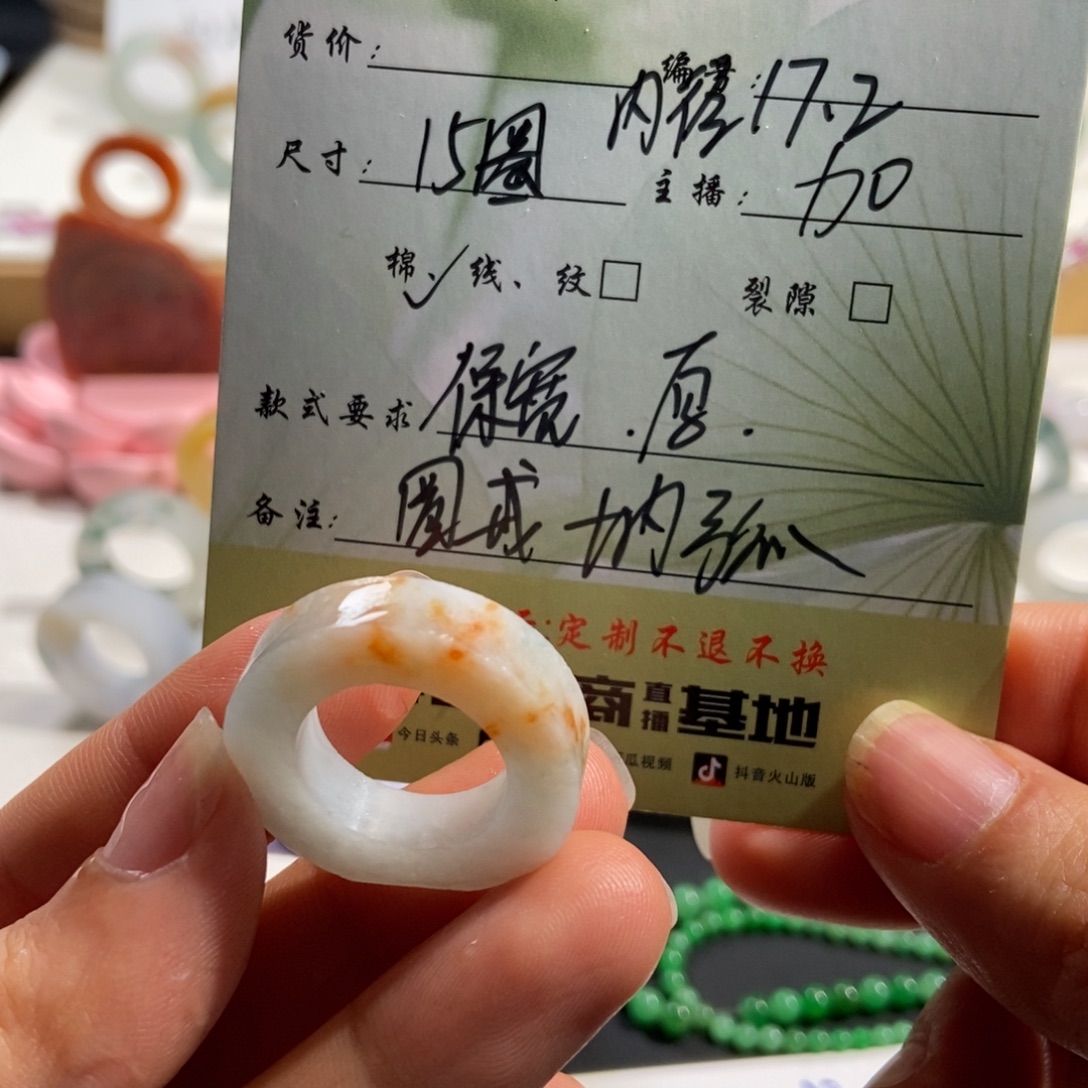 货价：
编号：内径17.2
尺寸：15圈 主播：加
棉、✓线、纹□ 裂隙□
款式要求 保宽.厚.
备注：圆戒 内弧
定制不退不换
商直播基地
今日头条 瓜视频 抖音火山版